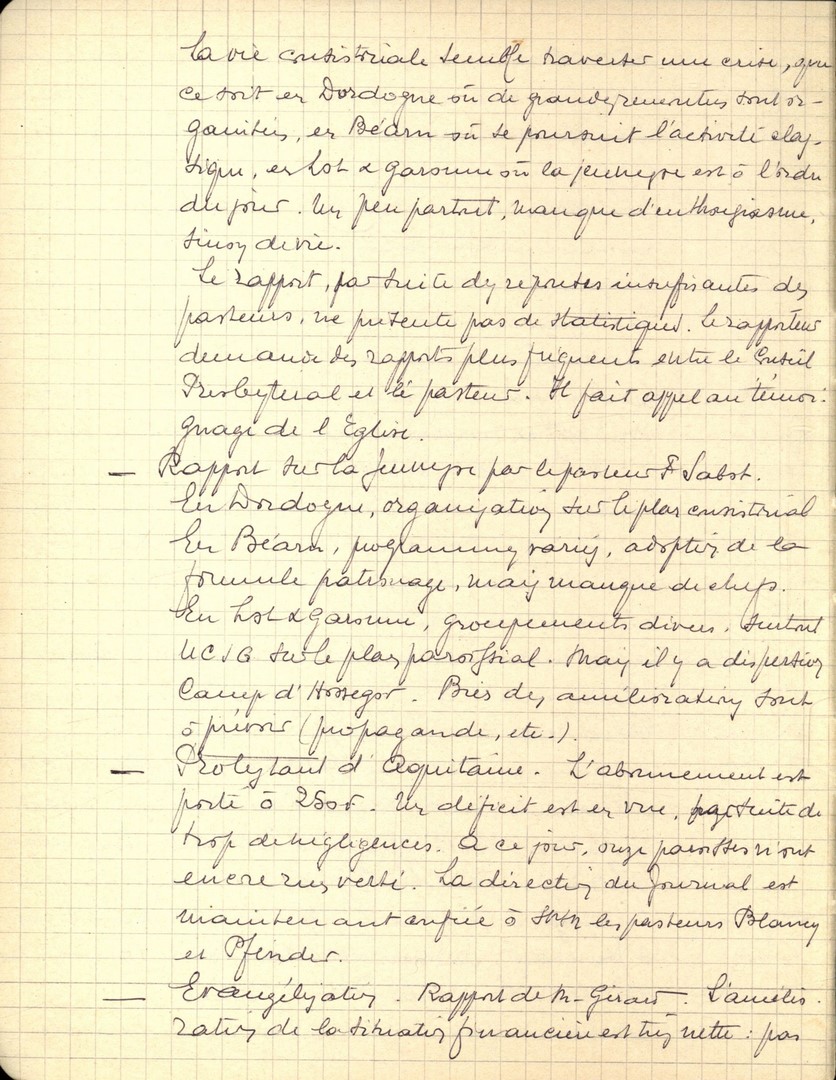 La vie consistoriale semble traverser une crise, que
ce soit en Dordogne où de grandes remontes sont or-
ganisées, en Béarn où se poursuit l'activité clas-
sique, en Lot & Garonne où la jeunesse est à l'ordre
du jour. Un peu partout, manque d'enthousiasme,
sinon de vie.
Le rapport, par suite des réponses insuffisantes des
pasteurs, ne présente pas de statistiques. Le rapporteur
demande des rapports plus fréquents entre le Conseil
Presbytéral et le pasteur. Il fait appel au témoi-
gnage de l'Eglise.
— Rapport sur la Jeunesse par le pasteur F Sabst.
En Dordogne, organisation sur le plan consistorial
En Béarn, programmes variés, adoption de la
formule patronage, mais manque de chefs.
En Lot & Garonne, groupements divers, surtout
UCJG sur le plan paroissial. Mais il y a dispersion
Camp d'Hossegor. Bref des améliorations sont
à prévoir (propagande, etc.).
— Protestant d'Aquitaine. L'abonnement est
porté à 250f. Un déficit est en vue, par suite de
trop de négligences. A ce jour, onze paroisses n'ont
encore rien versé. La direction du Journal est
maintenant confiée à MM les pasteurs Blancy
et Pfender.
— Evangélisation. Rapport de M. Girard. L'amélio-
ration de la situation financière est très nette : pas